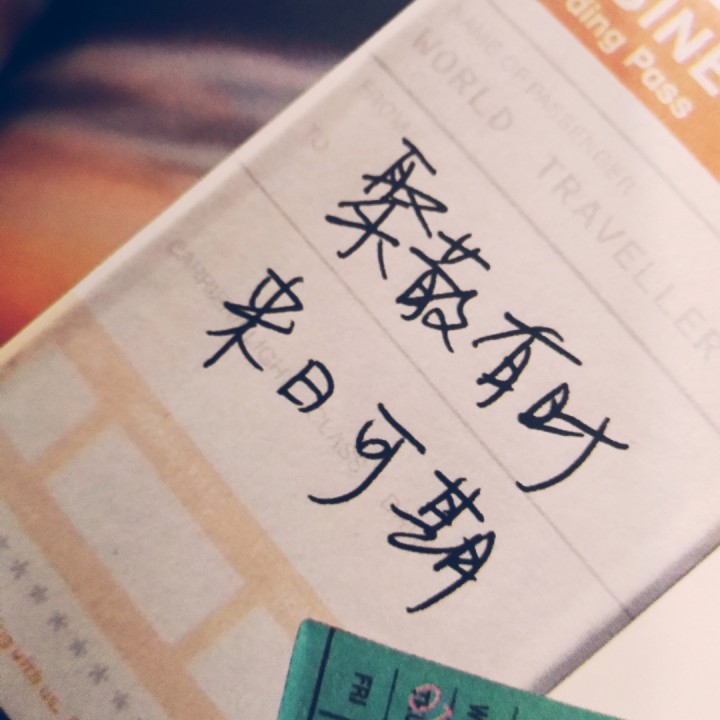 SINE
ding Pass
NAME OF PASSENGER
WORLD TRAVELLER
FROM
TO
聚散有时
来日可期
FRI